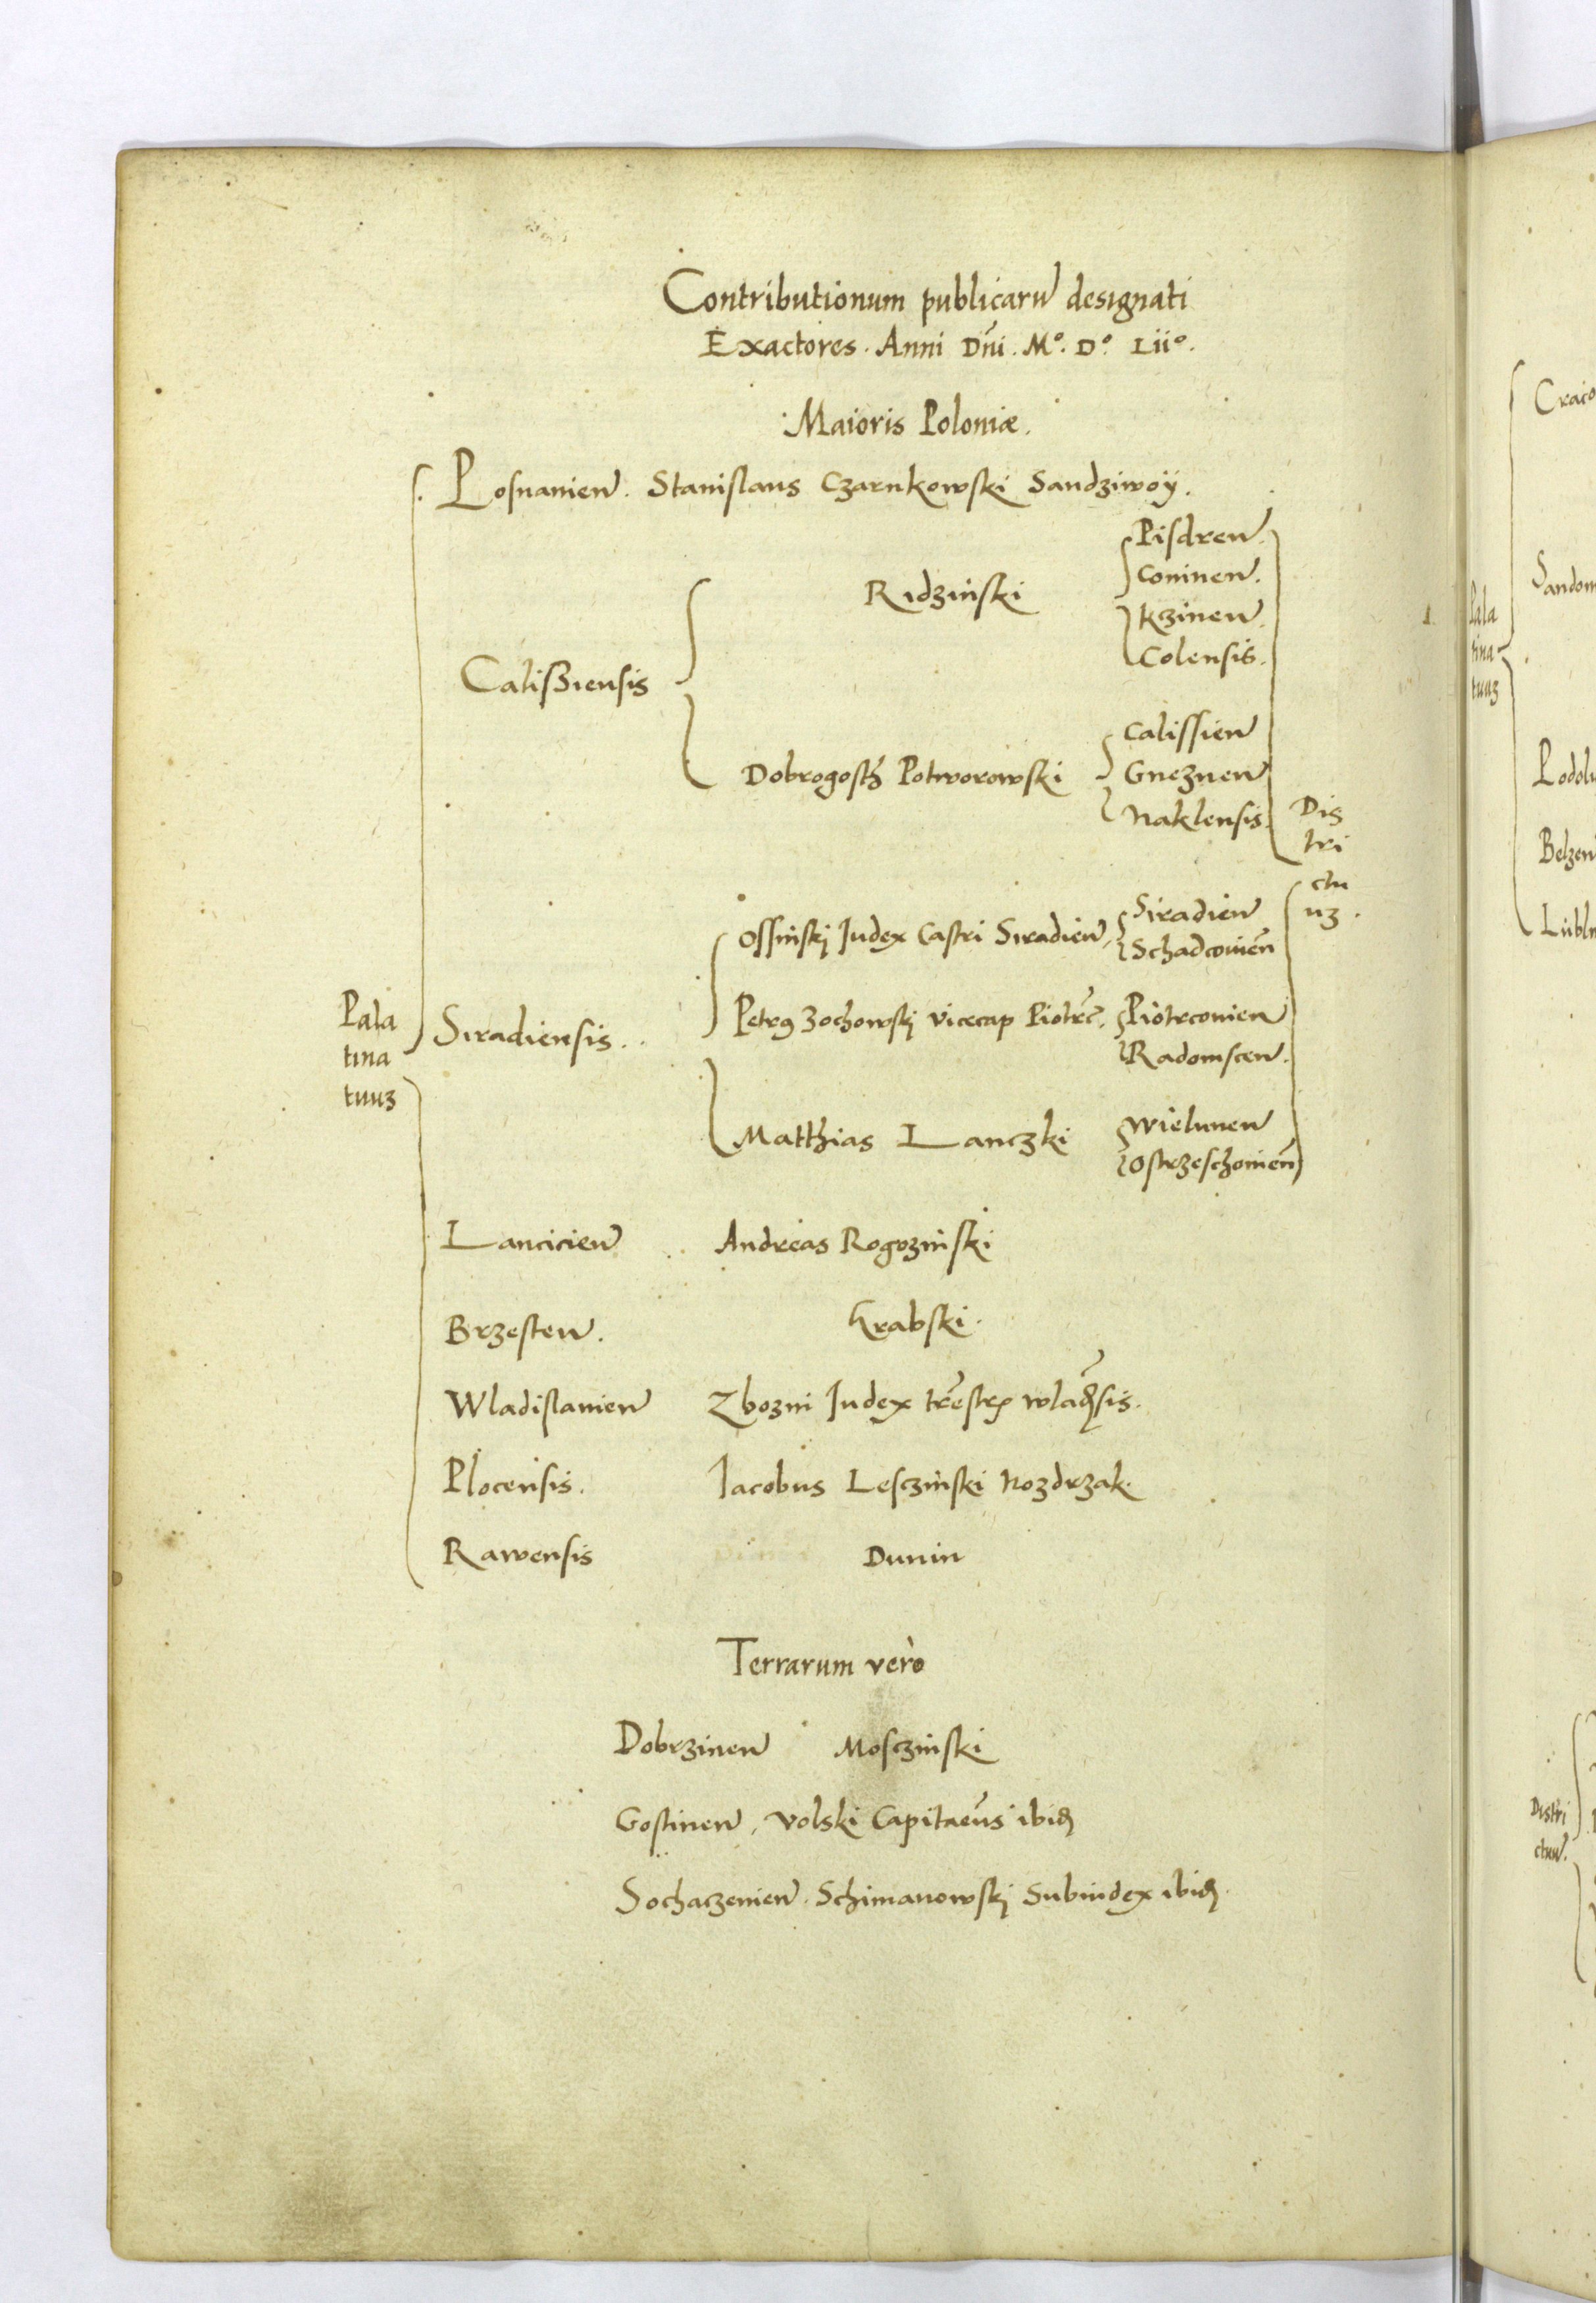 Contributionum publicarum designati
Exactores. Anni Dñi. Mº. Dº. Liiº.
Maioris Poloniæ.
Posnanien. Stanislaus Czarnkowski Sandziwoÿ.
Pisdren.
Coninen.
Ridzinski
Kzinen.
Colensis.
Calissiensis
Calissien
Dobrogosth Potworowski
Gneznen
Naklensis.
Dis
tri
ctu
uz.
Siradien
Ossinskj Iudex Castri Siradien,
Schadcouien
Pala
tina
tuuz
Siradiensis..
Petrꝯ Zochowskj vicecap Piotrc̃.
Piotrconien
Radomscen.
Matthias Lanczki
Wielunen
Ostrzeschouien
Lancicien Andreas Rogozinski
Brzesten. Krabski.
Wladislauien Zbozni Iudex trẽstrꝭ wladſis.
Plocensis. Iacobus Lesczinski Nozdrzak.
Rawensis Dunin
Terrarum verò
Dobrzinen Mosczinski
Gostinen, Volski Capitaeũs ibid
Sochaczeuien. Schimanowskj Subiudex ibid.
Craco
Sandom
Pala
tina
tuuz
Podol
Belzen
Lubl
Distri
ctuum.